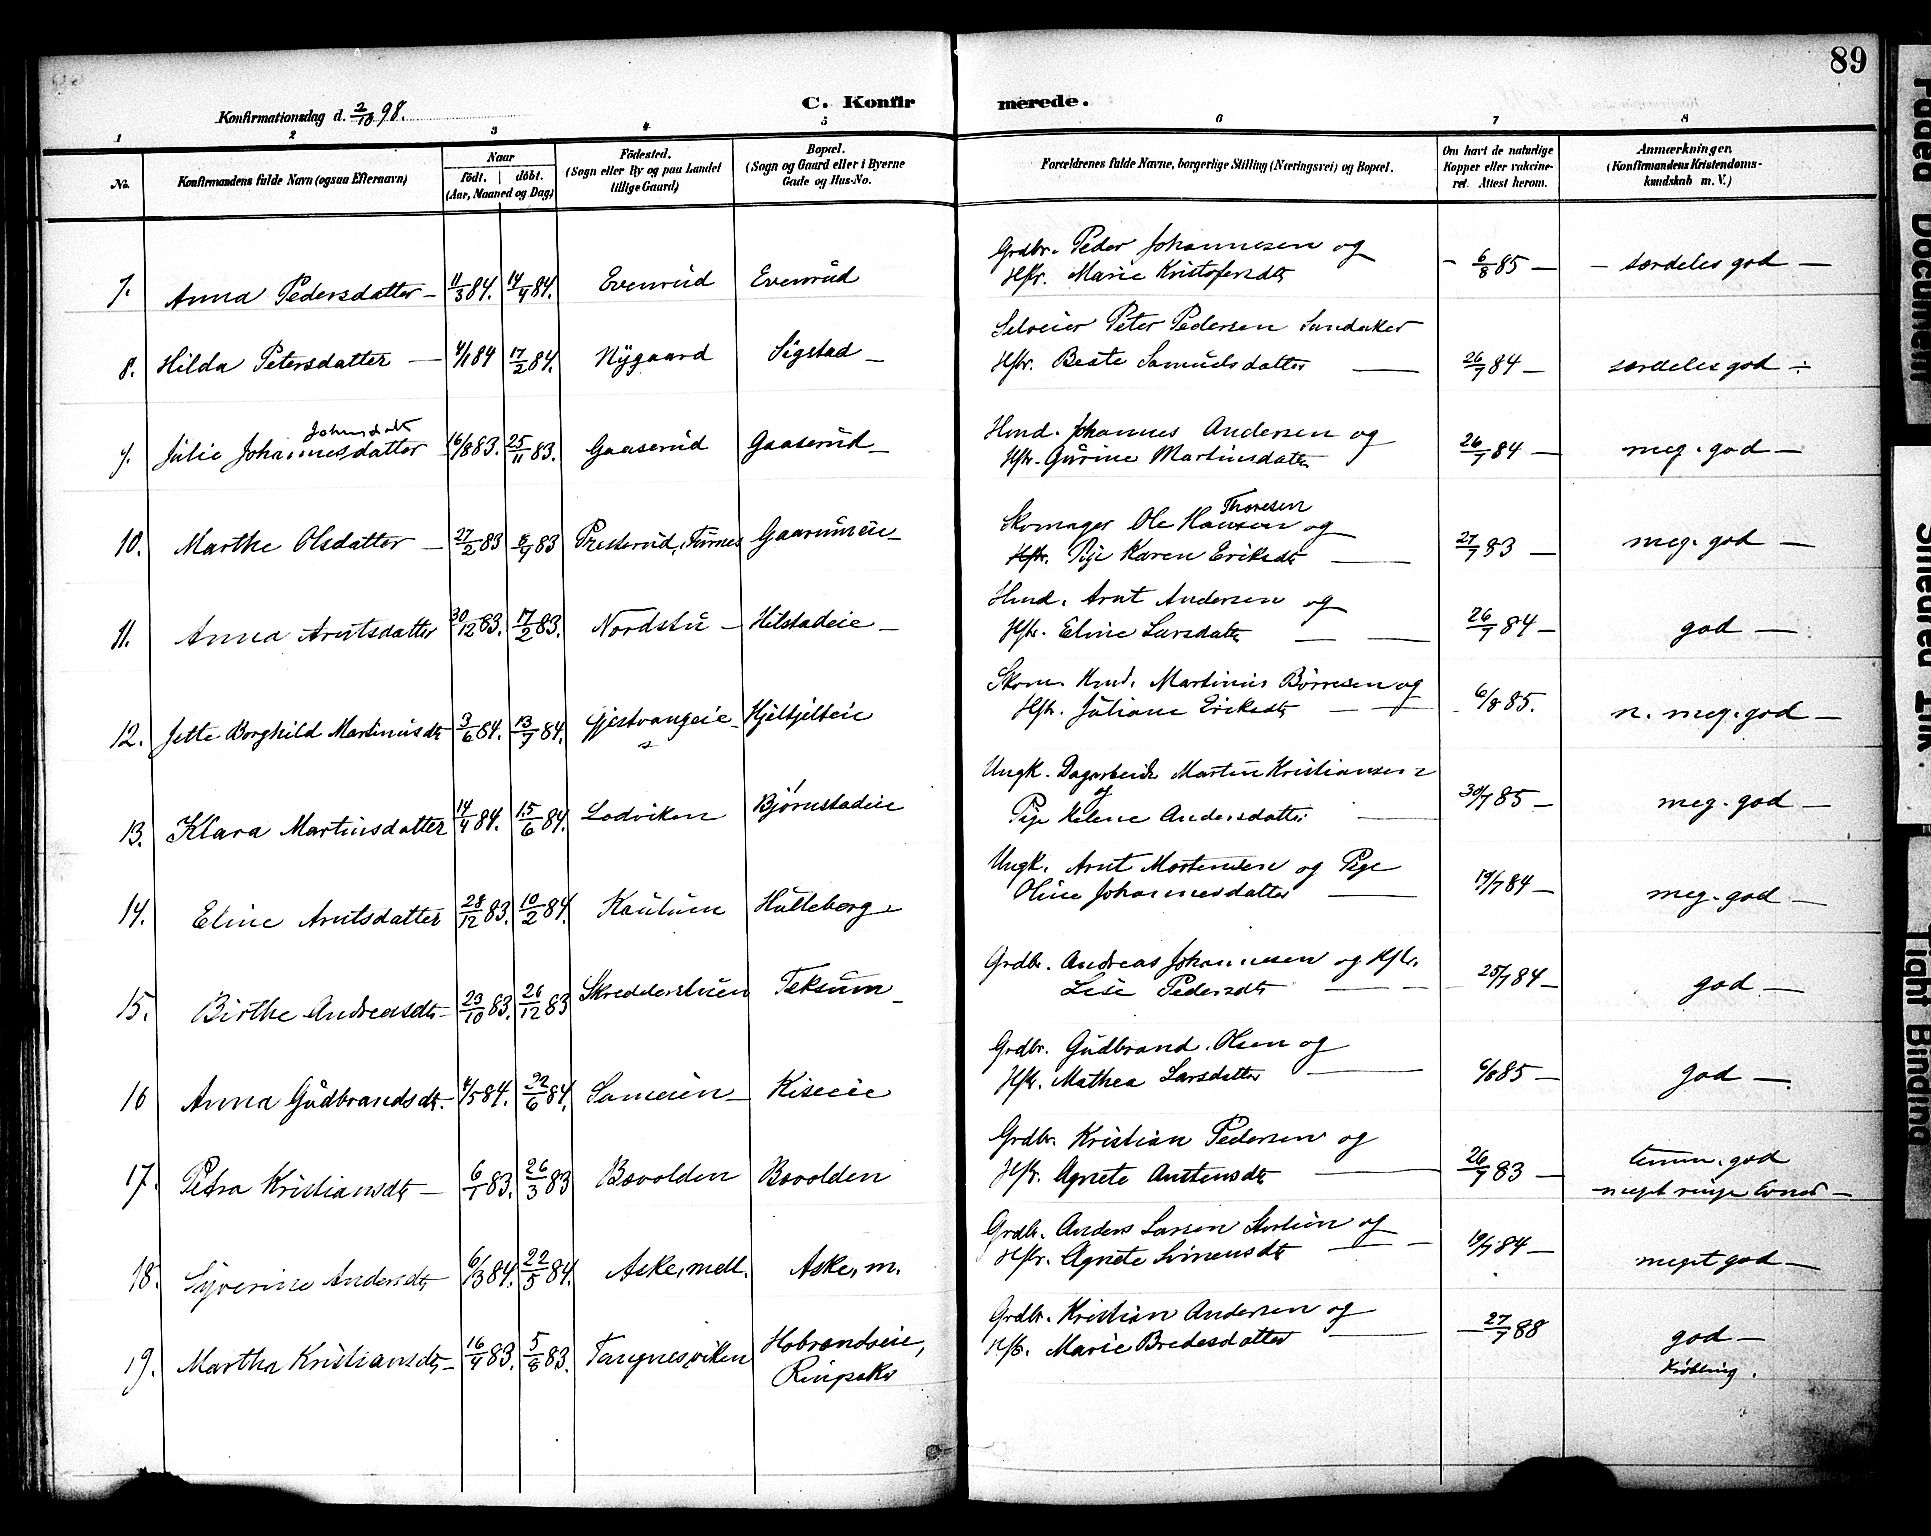 89
Konfirmationsdag d. 2/10 98.
C. Konfirmerede.
1 2 3 4 5 6 7 8
No.
Konfirmandens fulde Navn (ogsaa Efternavn)
Naar
födt. | döbt.
(Aar, Maaned og Dag)
Födested.
(Sogn eller By og paa Landet
tillige Gaard)
Bopæl.
(Sogn og Gaard eller i Byerne
Gade og Hus-No.
Forældrenes fulde Navne, borgerlige Stilling (Næringsvei) og Bopæl.
Om havt de naturlige
Kopper eller vakcine-
ret. Attest herom.
Anmærkninger.
(Konfirmandens Kristendoms-
kundskab m. V.)
7. Anna Pedersdatter — 11/3 84. 14/4 84. Evenrud Evenrud Grdbr. Peder Johannesen og
Hstr. Marie Kristofersdtr — 6/8 85 — — særdeles god —
8. Hilda Petersdatter — 4/1 84 17/2 84. Nygaard Sigstad — Selveier Peter Pedersen Sandaker
Hstr. Beate Samuelsdatter — 26/7 84 — særdeles god —
Johnsdatr
9. Julie Johannesdatter 16/8 83. 25/11 83. Gaaserud Gaaserud — Hmd. Johannes Andersen og
Hstr. Gurine Martinsdatr 26/7 84 — meg. god —
Thoresen
10. Marthe Olsdatter — 27/2 83 8/4 83 Presterud, Furnes Gaarumeie — Skomager Ole Hansen og
Hstr. Pige Karen Eriksdtr — 27/7 83 — meg. god —
11. Anna Arntsdatter 30/12 83. 17/2 83. Nordstu — Hilstadeie — Hmd. Arnt Andersen og
Hstr. Eline Larsdatr — 26/7 84 — god —
12. Jette Borghild Martinusdtr 3/6 84. 13/7 84. Gjestvangeie — Hjeltjelteie Skom. Hmd. Martinus Börresen og
Hstr. Juliane Eriksdtr — 6/8 85. n. meg. god —
13. Klara Martinsdatter 14/4 84. 15/6 84. Lodviken Bjørnstadeie Ungk. Dagarbeider Martin Kristiansen
og
Pige Helene Andersdatter — 30/7 85 — meg. god —
14. Eline Arntsdatter 28/12 83. 10/2 84. Kaulum Hulleberg — Ungk. Arnt Mortensen og Pige
Oline Johannesdatter — 19/7 84 — meg. god —
15. Birthe Andreasdtr — 23/10 83. 26/12 83 Skredderstuen Teksum — Grdbr. Andreas Johannesen og Hstr.
Lise Pedersdtr — 25/7 84 — god —
16 Anna Gudbrandsdtr. 4/5 84. 22/6 84. Sameien — Kiseeie Grdbr. Gudbrand Olsen og
Hstr. Mathea Larsdatter — 6/8 85 — god —
17. Petra Kristiansdtr — 6/1 83. 26/3 83 Bøvolden Bøvolden Grdbr. Kristian Pedersen og
Hstr. Agnete Austensdtr — 26/7 83 — temm. god
meget ringe Evner —
18. Syverine Andersdtr 6/3 84. 22/5 84. Aske, mell. Aske, m. Grdbr. Anders Larsen og
Hstr. Agnete Simensdtr — 19/7 84 — meget god —
19. Martha Kristiansdtr — 16/4 83. 5/8 83. Tangnesviken Hobrandseie,
Ringsaker Grdbr. Kristian Andersen og
Hstr. Marie Bredesdatter — 27/7 88 god —
Krøbling.
Faded Document
Smeared Ink.
Tight Binding